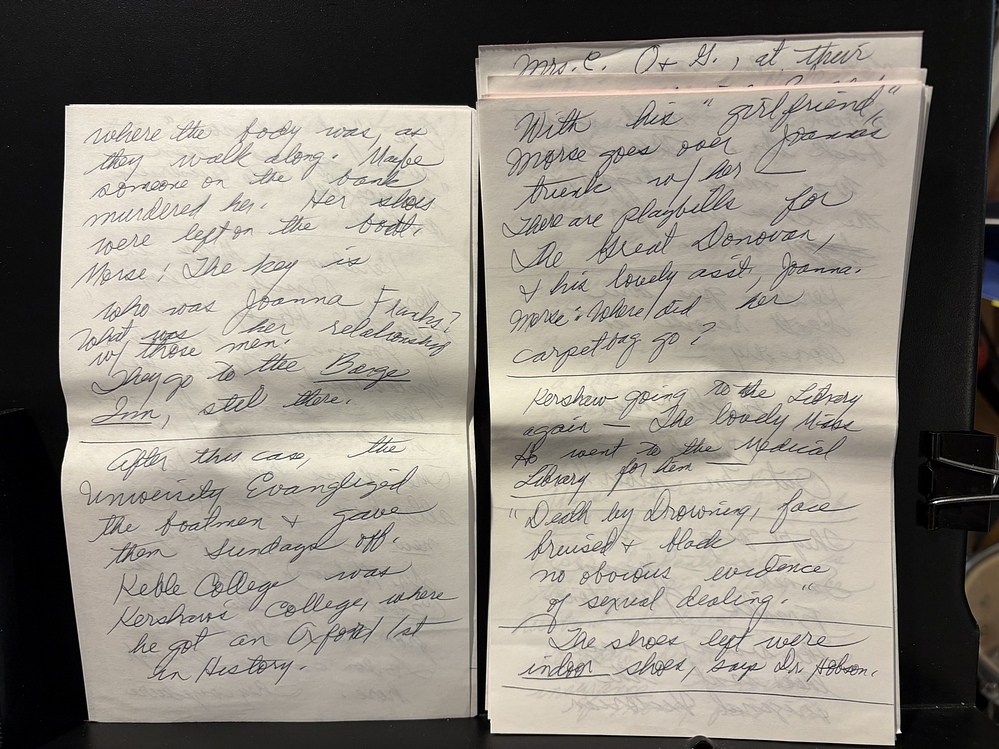 where the body was, as
they walk along. Maybe
someone on the bank
murdered her. Her shoes
were left on the boat.
Morse: The key is
who was Joanna Franks?
What was her relationship
w/ those men.
They go to the Barge
Inn, still there.
After this case, the
University Evanglized
the boatmen & gave
them Sundays off.
Keble College was
Kershaw's College, where
he got an Oxford 1st
in History.
Mrs. C. O & G., at their
With his "girlfriend,"
Morse goes over Joanna's
trunk w/ her —
There are playbills for
The Great Donovan,
& his lovely asst, Joanna.
Morse: Where did her
carpetbag go?
Kershaw going to the Library
again — The lovely Miss
Ho went to the Medical
Library for him
"Death by Drowning, face
bruised & black —
no obvious evidence
of sexual dealing."
The shoes left were
indoor shoes, says Dr. Hobson.